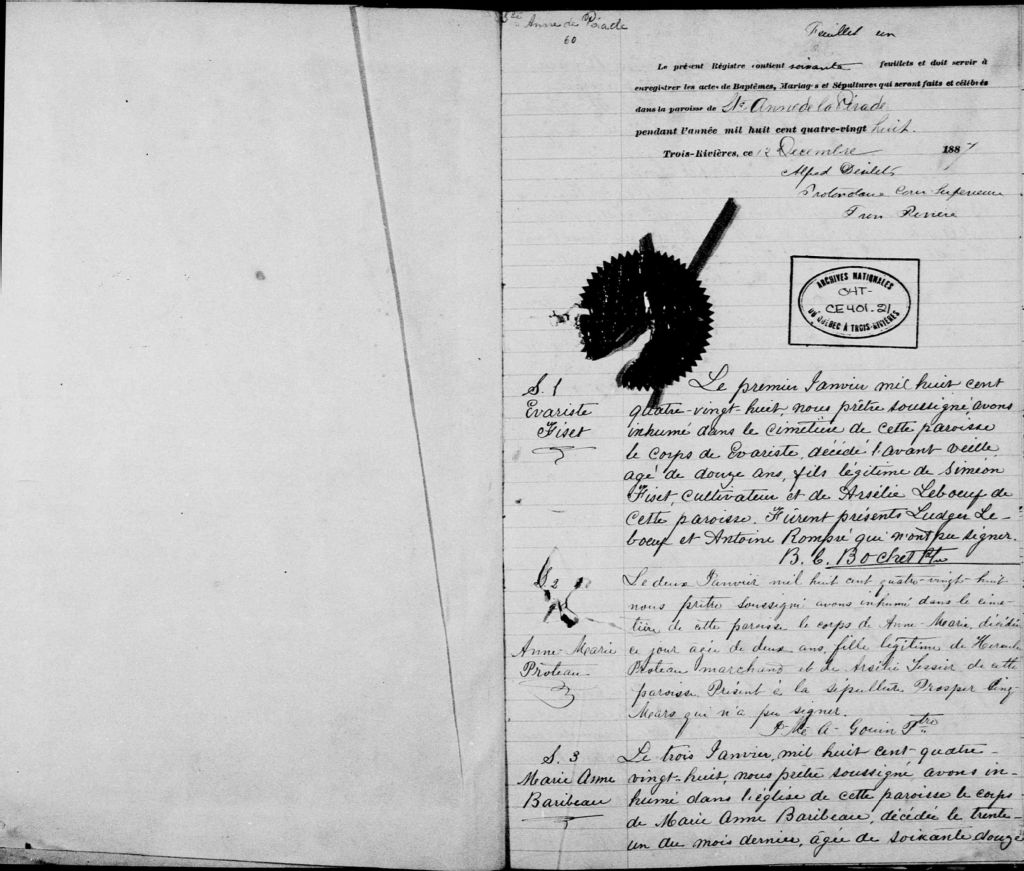 Ste Anne de Pérade
60
Feuillet un
Le présent Régistre contient soixante feuillets et doit servir à
enregistrer les actes de Baptêmes, Mariages et Sépultures qui seront faits et célébrés
dans la paroisse de Ste Anne de la Pérade
pendant l'année mil huit cent quatre-vingt huit.
Trois-Rivières, ce 12 Decembre 1887
Alfred Désilets
Protonotaire Cour Supérieure
Trois Rivière
ARCHIVES NATIONALES
04T-
CE401-21
DU QUÉBEC À TROIS-RIVIÈRES
S. 1
Evariste
Fiset
Le premier Janvier mil huit cent
quatre-vingt-huit, nous prêtre soussigné, avons
inhumé dans le cimetière de cette paroisse
le corps de Evariste, décédé l'avant veille
agé de douze ans, fils légitime de Siméon
Fiset, cultivateur et de Arsélie Leboeuf de
cette paroisse. Fûrent présents Ludger Le-
boeuf et Antoine Rompré qui n'ont pu signer.
B. C. Bochet Ptre
S 2
Anne-Marie
Proteau
Le deux Janvier mil huit cent quatre-vingt-huit
nous prêtre soussigné avons inhumé dans le cime-
tière de cette paroisse le corps de Anne-Marie, décédée
ce jour agée de deux ans, fille légitime de
Proteau marchand et de Arsélie Tessier de cette
paroisse. Présent à la sépulture Prosper Cinq
Mars qui n'a pu signer.
A. Gouin Ptre
S. 3
Marie Anne
Baribeau
Le trois Janvier, mil huit cent-quatre-
vingt-huit, nous prêtre soussigné, avons in-
humé dans l'église de cette paroisse le corps
de Marie Anne Baribeau, décédée le trente-
un du mois dernier, âgée de soixante douze